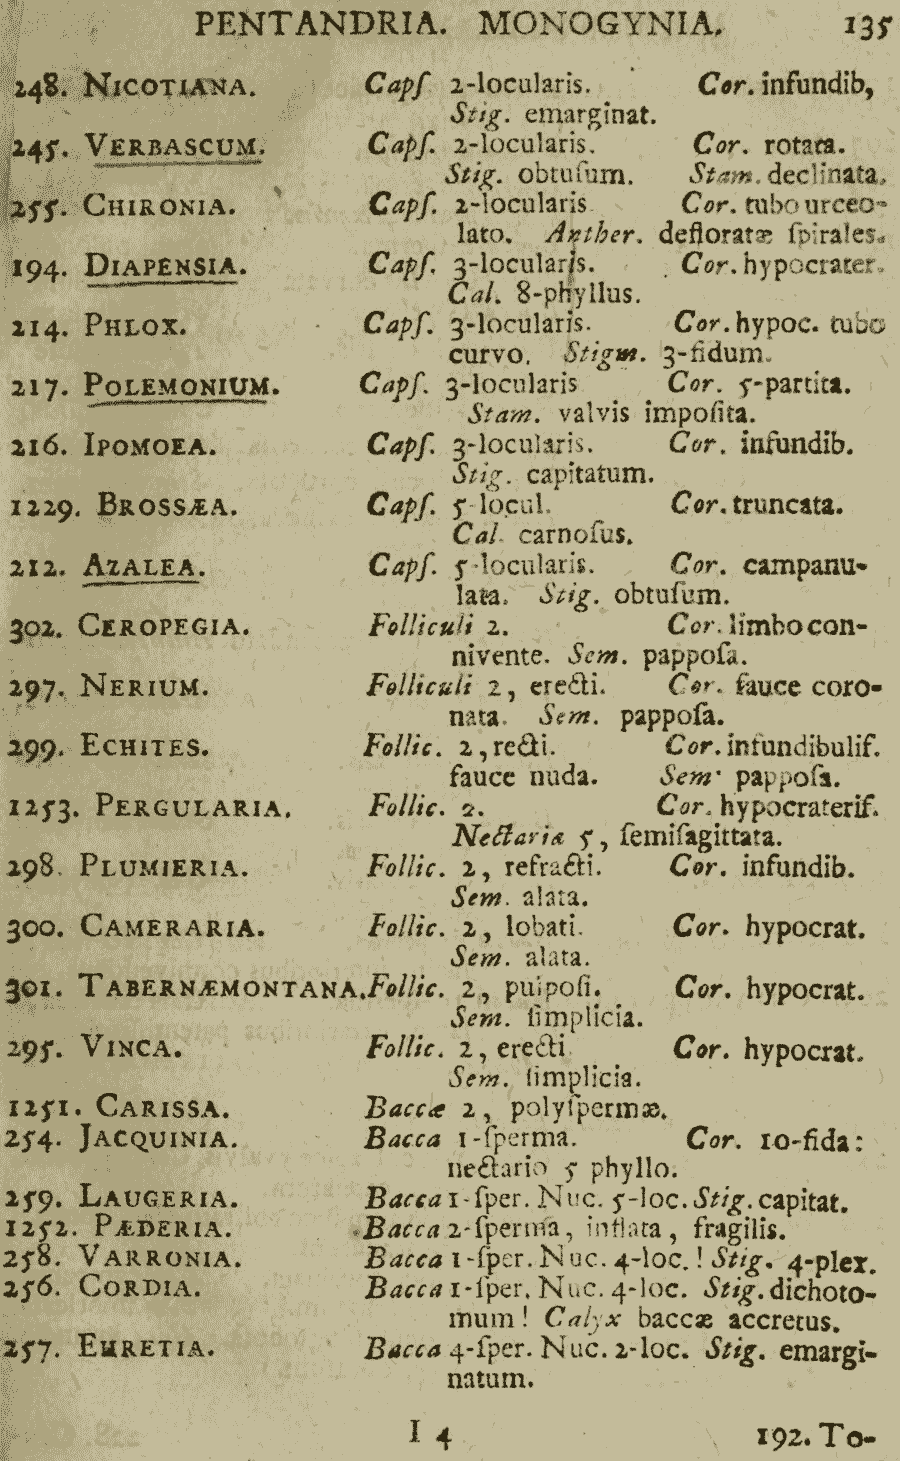 PENTANDRIA. MONOGYNIA. 135
248. NICOTIANA. Capſ 2-locularis. Cor. infundib,
Stig. emarginat.
245. VERBASCUM. Capſ. 2-locularis. Cor. rotata.
Stig. obtuſum. Stam. declinata.
255. CHIRONIA. Capſ. 2-locularis Cor. tubo urceo-
lato. Anther. defloratæ ſpirales.
194. DIAPENSIA. Capſ. 3-locularis. Cor. hypocrater.
Cal. 8-phyllus.
214. PHLOX. Capſ. 3-locularis. Cor. hypoc. tubo
curvo. Stigm. 3-fidum.
217. POLEMONIUM. Capſ. 3-locularis Cor. 5-partita.
Stam. valvis impoſita.
216. IPOMOEA. Capſ. 3-locularis. Cor. infundib.
Stig. capitatum.
1229. BROSSÆA. Capſ. 5-locul. Cor. truncata.
Cal. carnoſus.
212. AZALEA. Capſ. 5-locularis. Cor. campanu-
lata. Stig. obtuſum.
302. CEROPEGIA. Folliculi 2. Cor. limbo con-
nivente. Sem. pappoſa.
297. NERIUM. Folliculi 2, erecti. Cor. fauce coro-
nata. Sem. pappoſa.
299. ECHITES. Follic. 2, recti. Cor. infundibulif.
fauce nuda. Sem· pappoſa.
1253. PERGULARIA. Follic. 2. Cor. hypocraterif.
Nectaria 5, ſemiſagittata.
298. PLUMIERIA. Follic. 2, refracti. Cor. infundib.
Sem. alata.
300. CAMERARIA. Follic. 2, lobati. Cor. hypocrat.
Sem. alata.
301. TABERNÆMONTANA. Follic. 2, pulpoſi. Cor. hypocrat.
Sem. ſimplicia.
295. VINCA. Follic. 2, erecti Cor. hypocrat.
Sem. ſimplicia.
1251. CARISSA. Baccæ 2, polyſpermæ.
254. JACQUINIA. Bacca 1-ſperma. Cor. 10-fida:
nectario 5 phyllo.
259. LAUGERIA. Bacca 1-ſper. Nuc. 5-loc. Stig. capitat.
1252. PÆDERIA. Bacca 2-ſperma, inflata, fragilis.
258. VARRONIA. Bacca 1-ſper. Nuc. 4-loc.! Stig. 4-plex.
256. CORDIA. Bacca 1-ſper. Nuc. 4-loc. Stig. dichoto-
mum! Calyx baccæ accretus.
257. EHRETIA. Bacca 4-ſper. Nuc. 2-loc. Stig. emargi-
natum.
I 4 192. To-